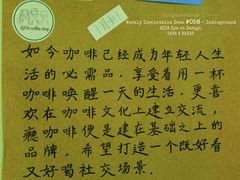 Weekly Inspiration Dose #056 - Indieground
AIGA Eye on Design
TAKE A BREAK
如今咖啡已经成为年轻人生
活的必需品，享受着用一杯
咖啡唤醒一天的生活。更喜
欢在咖啡文化上建立交流，
瘾咖啡便是建在基础之上的
品牌，希望打造一个既好看
又好喝社交场景。